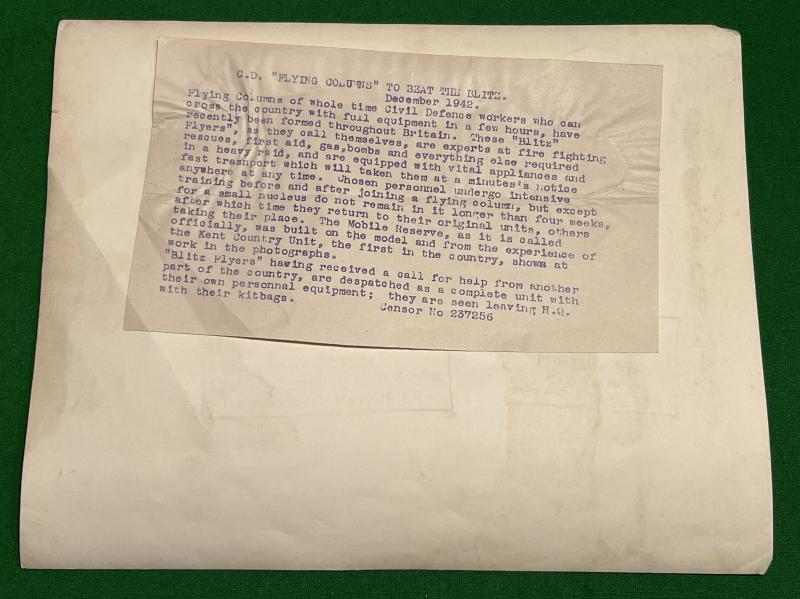 C.D. "FLYING COLUMNS" TO BEAT THE BLITZ.
December 1942.
Flying Columns of whole time Civil Defence workers who can
cross the country with full equipment in a few hours, have
recently been formed throughout Britain. These "Blitz"
Flyers", they call themselves, are experts at fire fighting
rescues, first aid, gas,bombs and everything else required
in a heavy raid, and are equipped with vital appliances and
fast trasnport which will taken them at a minutes's notice
anywhere at any time. Chosen personnel undergo intensive
training before and after joining a flying column, but except
for a small nucleus do not remain in it longer than four weeks,
after which time they return to their original units, others
taking their place. The Mobile Reserve, as it is called
officially, was built on the model and from the experience of
the Kent Country Unit, the first in the country, shown at
work in the photographs.
"Blitz Flyers" having received a call for help from another
part of the country, are despatched as a complete unit with
their own personnal equipment; they are seen leaving H.Q.
with their kitbags.
Censor No 237256